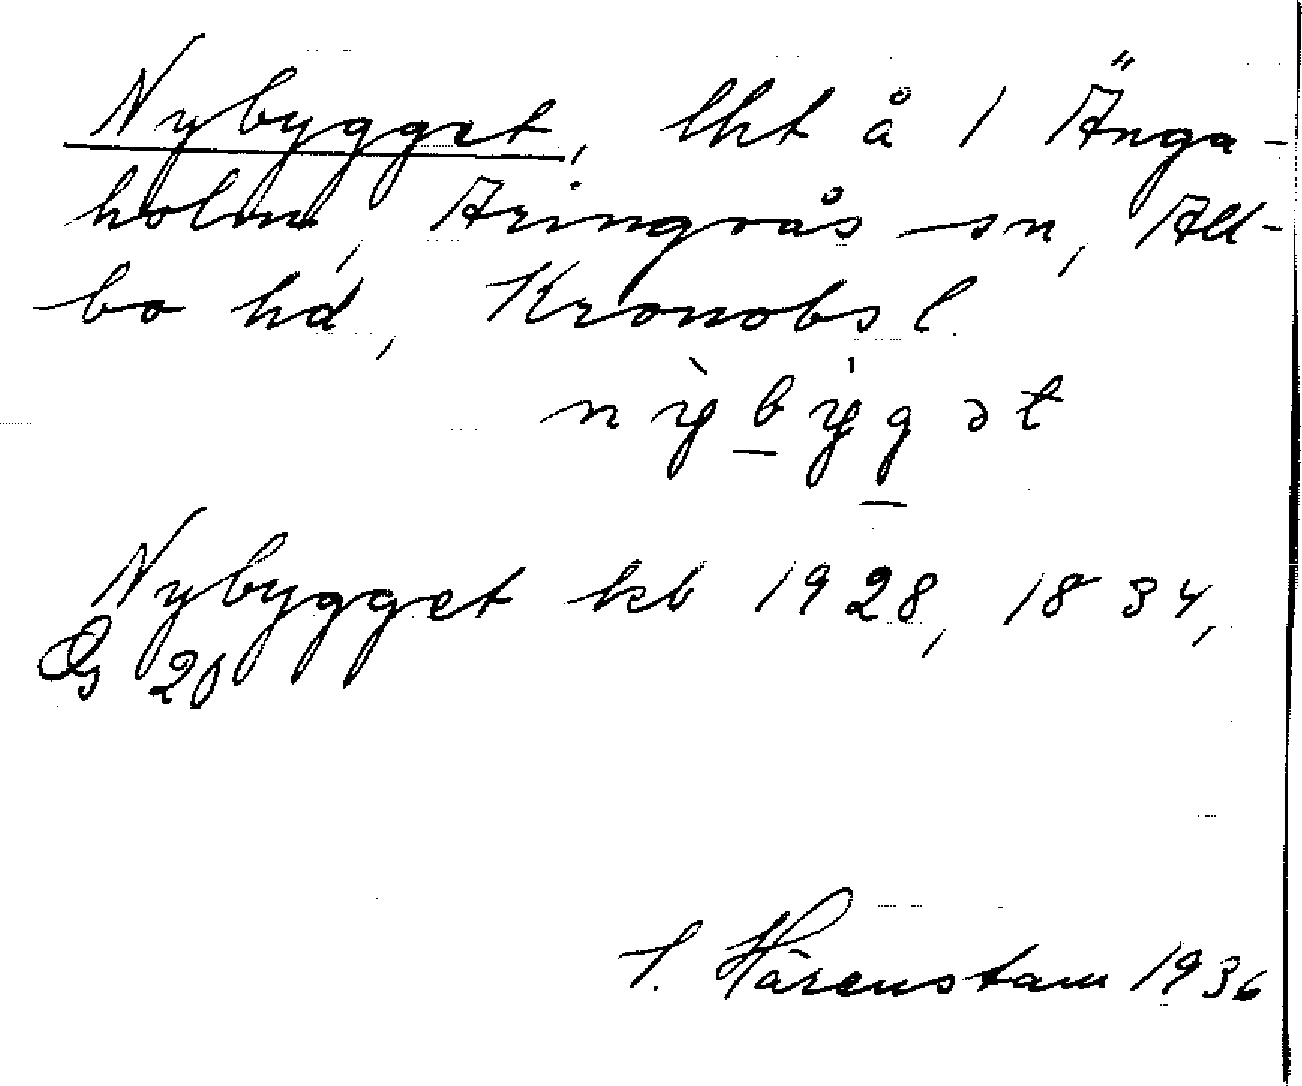 Nybygget, lht å 1 Änga-
holm, Aringsås sn, All-
bo hd, Kronobs l.
nỳbýgət
Nybygget kb 1928, 1834,
GS 20
S. Härenstam 1936